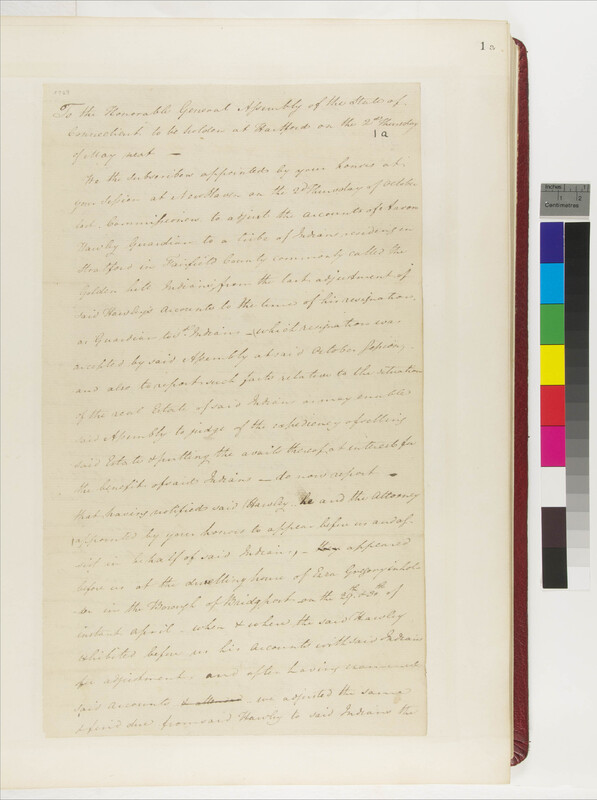 15
To the Honorable General Assembly of the State of
Connecticut to be holden at Hartford on the 2d Thursday
1a
of May next —
We the Subscribers appointed by your honors at
your Session at New Haven on the 2d Thursday of October
last, Commissioners to adjust the accounts of Aaron
Hawley Guardian to a tribe of Indians residing in
Stratford in Fairfield County commonly called the
Golden hill Indians, from the last adjustment of
said Hawley's accounts to the time of his resignation,
as Guardian to sd Indians — which resignation was
accepted by said Assembly at said October Session,
and also to report such facts relative to the situation
of the real Estate of said Indians as may enable
said Assembly to judge of the expediency of selling
said Estate & putting the avails thereof, at interest for
the benefit of said Indians — do now report —
that having notified said Hawley, and the Attorney
appointed by your honors to appear before us and
in behalf of said Indians, — they appeared
before us at the dwelling house of Ezra Gregory
in the Borough of Bridgport on the 29th & 30th of
instant April — when & where the said Hawley
exhibited before us his accounts with said Indians
for adjustment and after having examined
said accounts we adjusted the same
& find due from said Hawley to said Indians the
inches 1 2
Centimetres